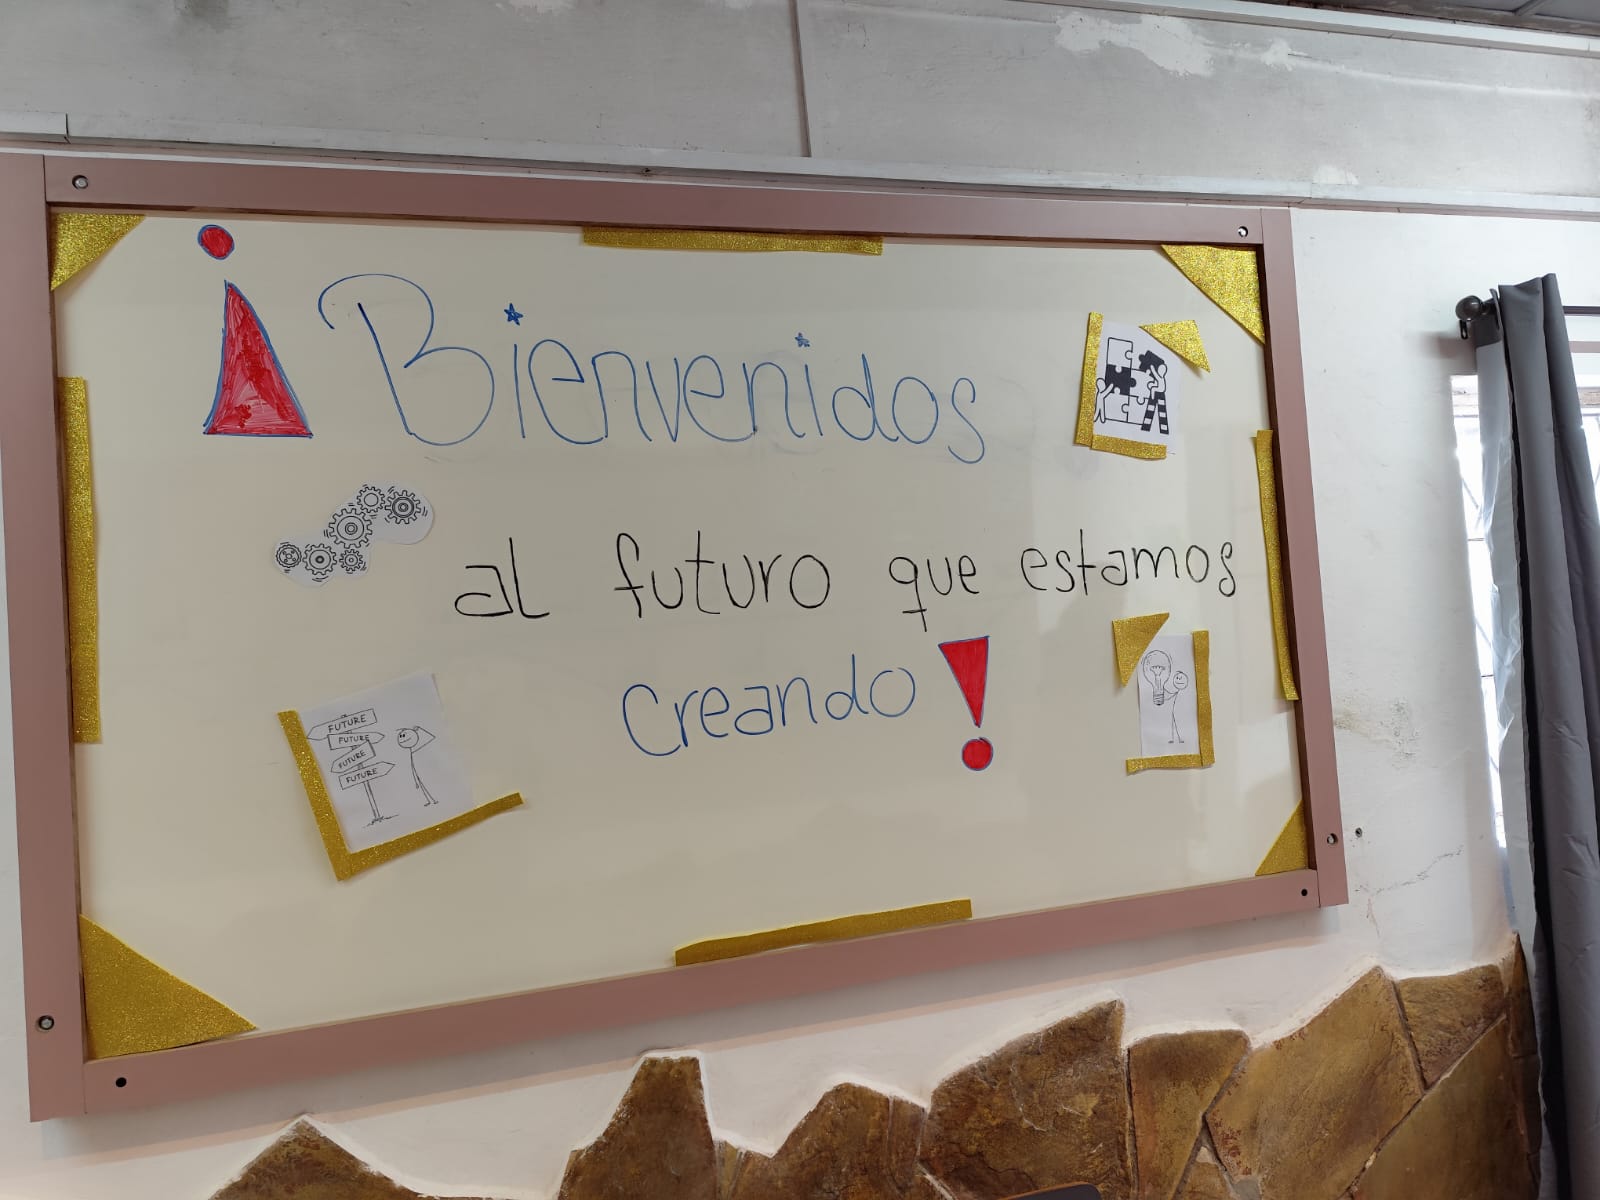 ¡Bienvenidos
al futuro que estamos
creando!
FUTURE
FUTURE
FUTURE
FUTURE